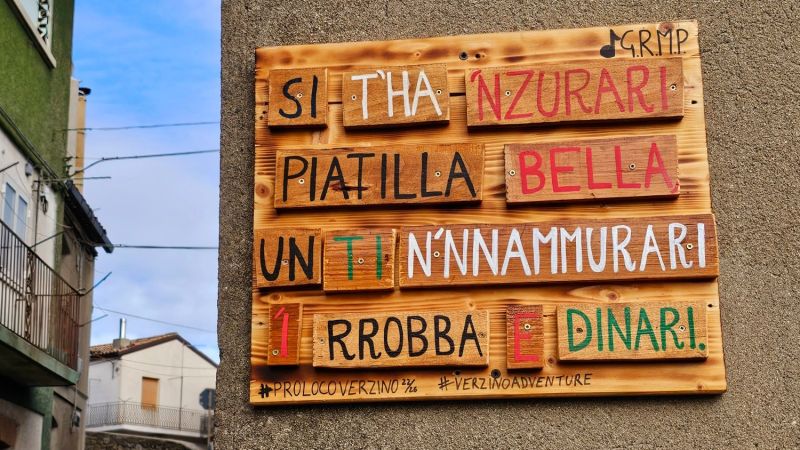 G.R.M.P.
SI T'HA 'NZURARI
PIATILLA BELLA
UN TI N'NNAMMURARI
'I RROBBA E DINARI.
#PROLOCOVERZINO 22/26 #VERZINOADVENTURE